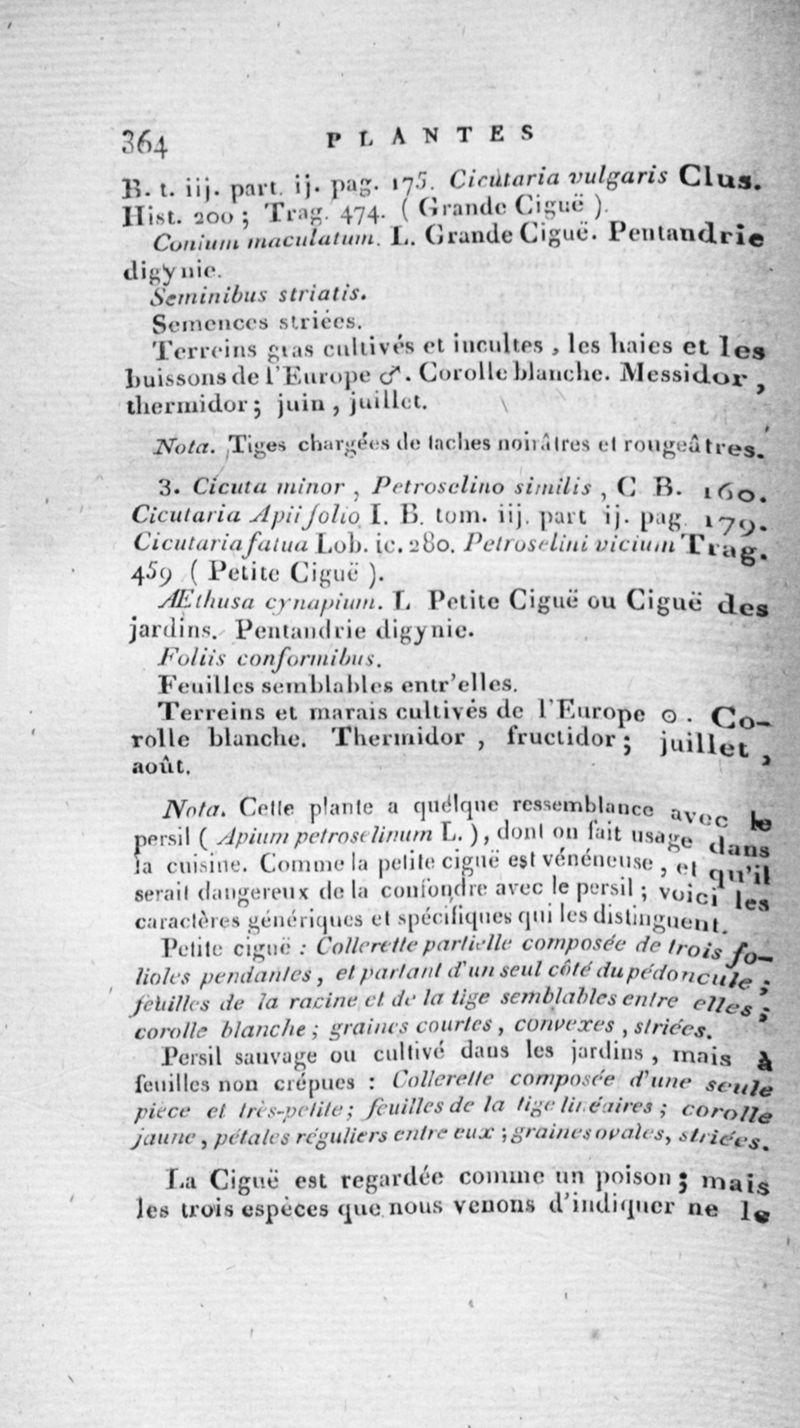 364 PLANTES
B. t. iij. part. ij. pag. 175. Cicutaria vulgaris Clus.
Hist. 200 ; Trag. 474. ( Grande Ciguë ).
Conium maculatum. L. Grande Ciguë. Pentandrie
digynie.
Seminibus striatis.
Semences striées.
Terreins gras cultivés et incultes , les haies et les
buissons de l'Europe ♂. Corolle blanche. Messidor ,
thermidor ; juin , juillet.
Nota. Tiges chargées de taches noirâtres et rougeâtres.
3. Cicuta minor , Petroselino similis , C B. 160.
Cicutaria Apii folio I. B. tom. iij. part ij. pag. 179.
Cicutaria fatua Lob. ic. 280. Petroselini vicium Trag.
459 ( Petite Ciguë ).
Æthusa cynapium. L Petite Ciguë ou Ciguë des
jardins. Pentandrie digynie.
Foliis conformibus.
Feuilles semblables entr'elles.
Terreins et marais cultivés de l'Europe ⊙. Co-
rolle blanche. Thermidor , fructidor ; juillet ,
août.
Nota. Cette plante a quelque ressemblance avec le
persil ( Apium petroselinum L. ), dont on fait usage dans
la cuisine. Comme la petite ciguë est vénéneuse , et qu'il
serait dangereux de la confondre avec le persil ; voici les
caractères génériques et spécifiques qui les distinguent.
Petite ciguë : Collerette partielle composée de trois fo-
lioles pendantes, et partant d'un seul côté du pédoncule ;
feuilles de la racine et de la tige semblables entre elles ;
corolle blanche ; graines courtes, convexes , striées.
Persil sauvage ou cultivé dans les jardins , mais à
feuilles non crépues : Collerette composée d'une seule
pièce et très-petite ; feuilles de la tige linéaires ; corolle
jaune , pétales réguliers entre eux ; graines ovales, striées.
La Ciguë est regardée comme un poison ; mais
les trois espèces que nous venons d'indiquer ne le